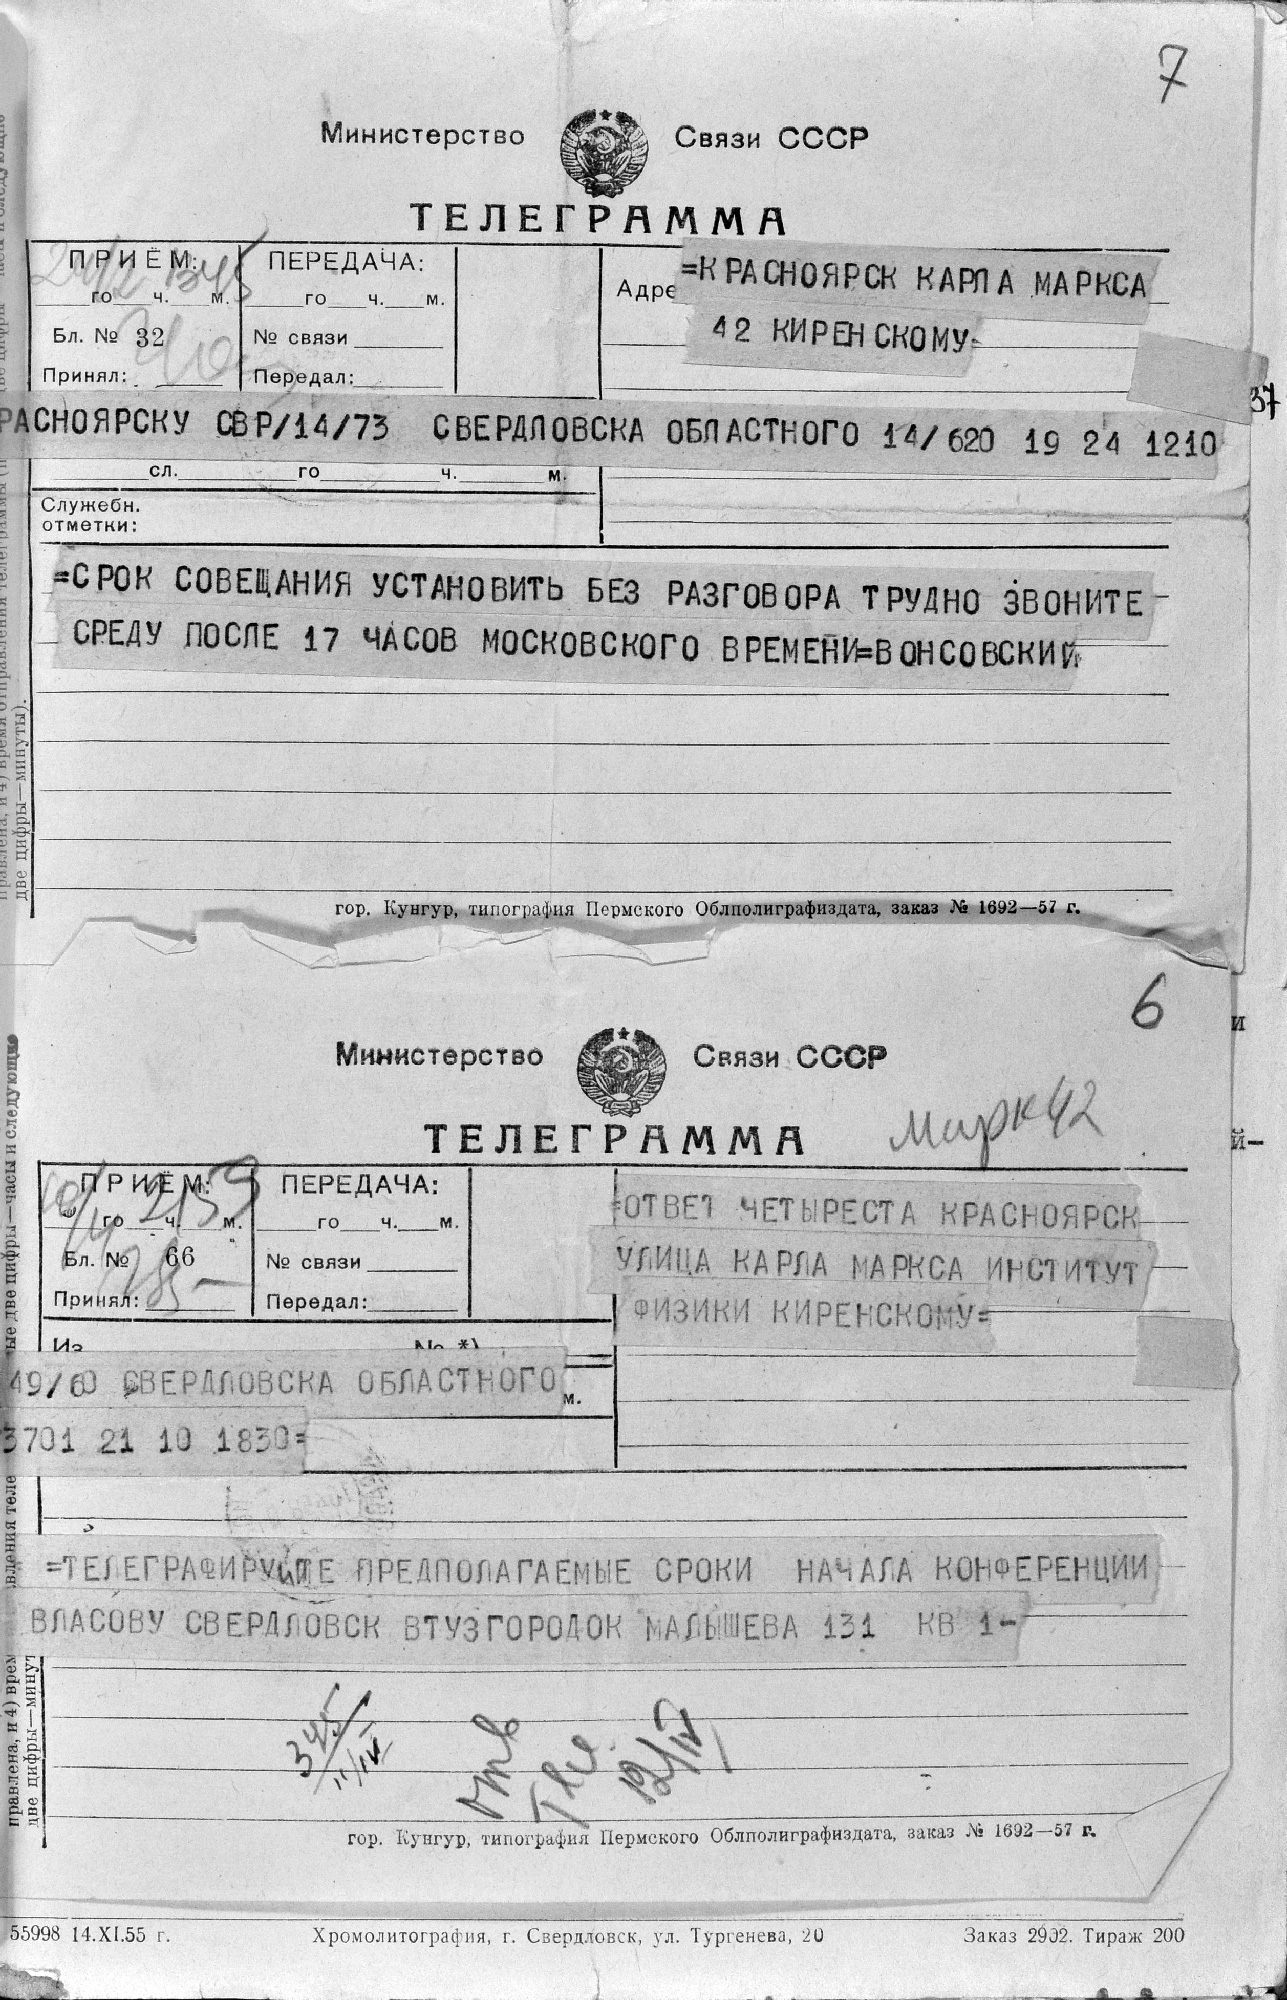 7
Министерство Связи СССР
ТЕЛЕГРАММА
ПРИЁМ:
го ч. м.
Бл. № 32
Принял:
ПЕРЕДАЧА:
го ч. м.
№ связи
Передал:
Адре
=КРАСНОЯРСК КАРЛА МАРКСА
42 КИРЕНСКОМУ=
37
РАСНОЯРСКУ СВР/14/73 СВЕРДЛОВСКА ОБЛАСТНОГО 14/620 19 24 1210
сл. го ч. м.
Служебн.
отметки:
=СРОК СОВЕЩАНИЯ УСТАНОВИТЬ БЕЗ РАЗГОВОРА ТРУДНО ЗВОНИТЕ
СРЕДУ ПОСЛЕ 17 ЧАСОВ МОСКОВСКОГО ВРЕМЕНИ=ВОНСОВСКИЙ
две цифры—минуты).
гор. Кунгур, типография Пермского Облполиграфиздата, заказ № 1692—57 г.
6
и
Министерство Связи СССР
й—
ТЕЛЕГРАММА
Марк 42
ПРИЁМ:
го ч. м.
Бл. № 66
Принял:
ПЕРЕДАЧА:
го ч. м.
№ связи
Передал:
=ОТВЕТ ЧЕТЫРЕСТА КРАСНОЯРСК
УЛИЦА КАРЛА МАРКСА ИНСТИТУТ
ФИЗИКИ КИРЕНСКОМУ=
Из № *)
49/60 СВЕРДЛОВСКА ОБЛАСТНОГО
м.
3701 21 10 1830=
=ТЕЛЕГРАФИРУЙТЕ ПРЕДПОЛАГАЕМЫЕ СРОКИ НАЧАЛА КОНФЕРЕНЦИИ
ВЛАСОВУ СВЕРДЛОВСК ВТУЗГОРОДОК МАЛЫШЕВА 131 КВ 1-
ые две цифры—часы и следующие
вления теле
правлена, и 4) врем
две цифры—минут
345
11/IV
отв
тел.
12/IV
гор. Кунгур, типография Пермского Облполиграфиздата, заказ № 1692—57 г.
55998 14.XI.55 г. Хромолитография, г. Свердловск, ул. Тургенева, 20 Заказ 2902. Тираж 200